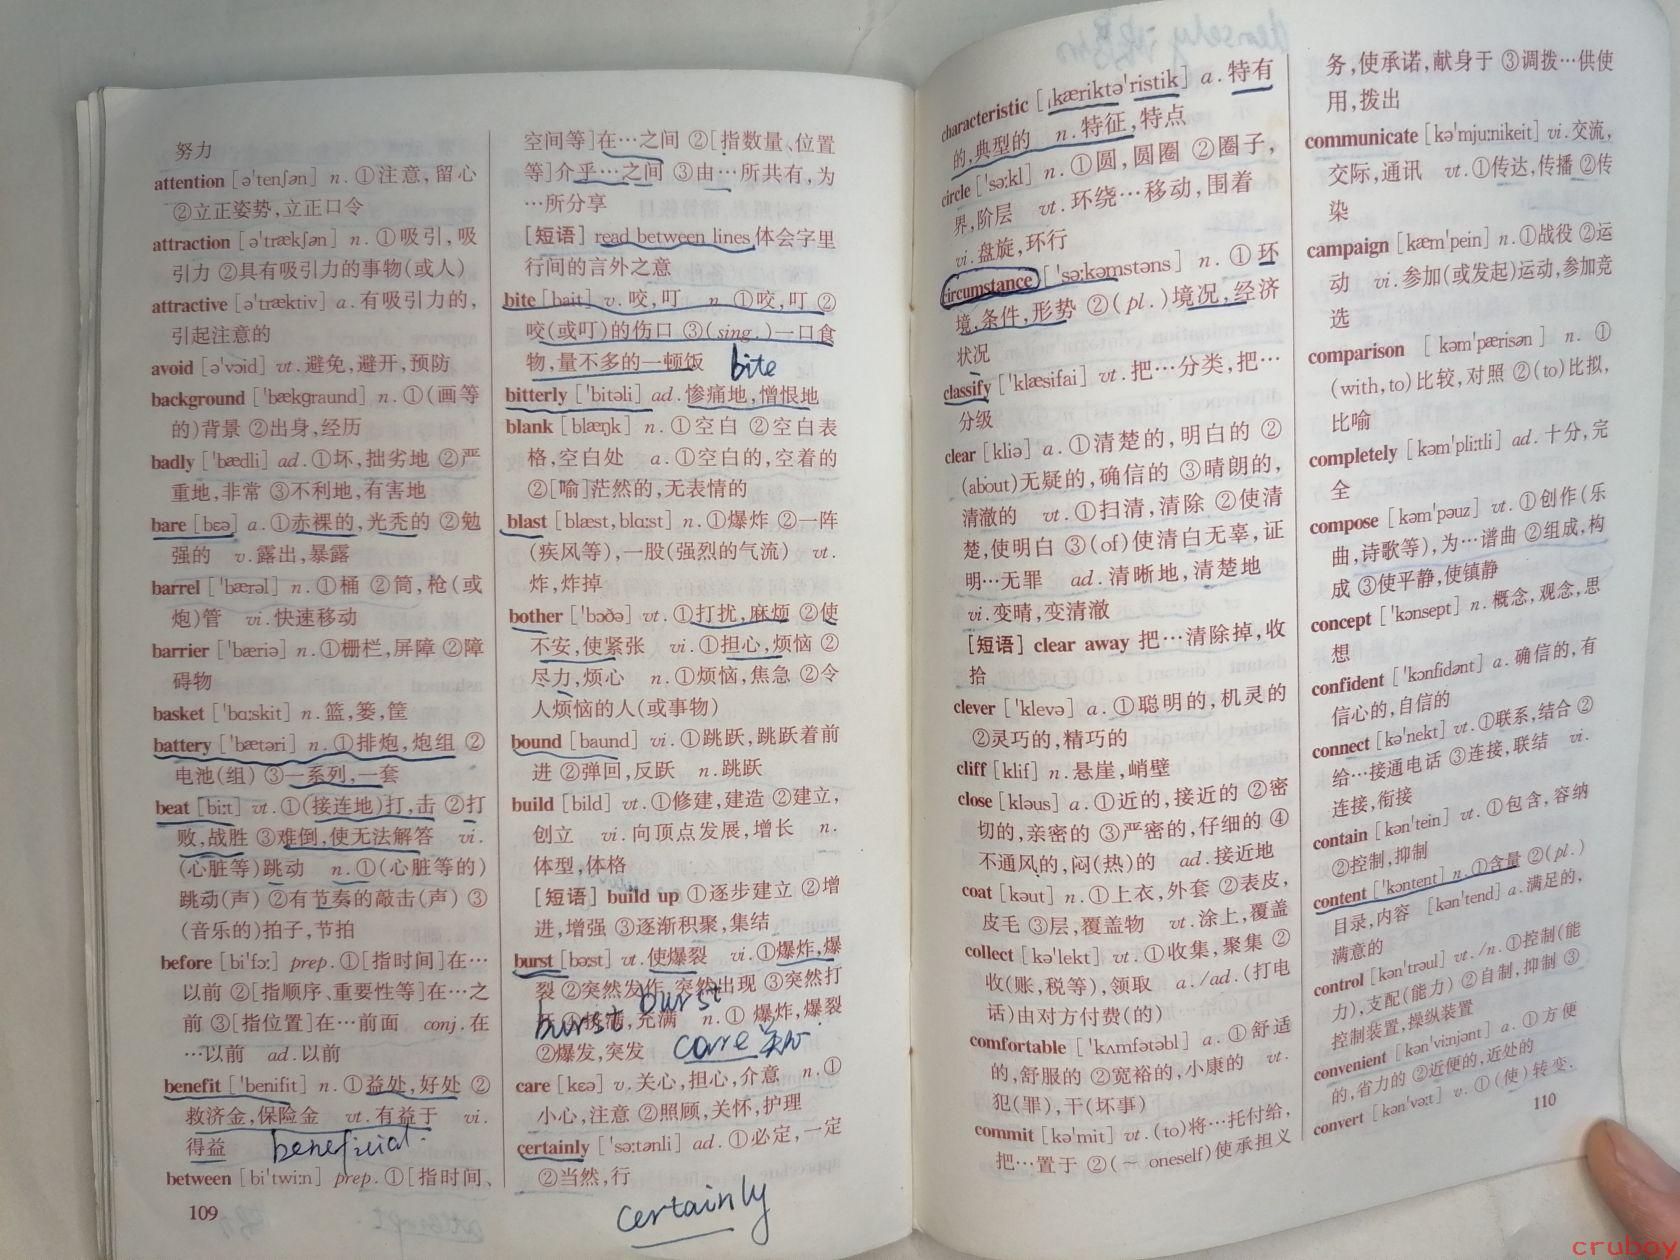 努力
attention [ə'tenʃən] n. ①注意,留心
②立正姿势,立正口令
attraction [ə'trækʃən] n. ①吸引,吸
引力 ②具有吸引力的事物(或人)
attractive [ə'træktiv] a. 有吸引力的,
引起注意的
avoid [ə'vɔid] vt. 避免,避开,预防
background ['bækgraund] n. ①(画等
的)背景 ②出身,经历
badly ['bædli] ad. ①坏,拙劣地 ②严
重地,非常 ③不利地,有害地
bare [bɛə] a. ①赤裸的,光秃的 ②勉
强的 v. 露出,暴露
barrel ['bærəl] n. ①桶 ②筒,枪(或
炮)管 vi. 快速移动
barrier ['bæriə] n. ①栅栏,屏障 ②障
碍物
basket ['bɑ:skit] n. 篮,篓,筐
battery ['bætəri] n. ①排炮,炮组 ②
电池(组) ③一系列,一套
beat [bi:t] vt. ①(接连地)打,击 ②打
败,战胜 ③难倒,使无法解答 vi.
(心脏等)跳动 n. ①(心脏等的)
跳动(声) ②有节奏的敲击(声) ③
(音乐的)拍子,节拍
before [bi'fɔ:] prep. ①[指时间]在…
以前 ②[指顺序、重要性等]在…之
前 ③[指位置]在…前面 conj. 在
…以前 ad. 以前
benefit ['benifit] n. ①益处,好处 ②
救济金,保险金 vt. 有益于 vi.
得益 beneficial.
between [bi'twi:n] prep. ①[指时间、
109
空间等]在…之间 ②[指数量、位置
等]介乎…之间 ③由…所共有,为
…所分享
[短语] read between lines 体会字里
行间的言外之意
bite [bait] v. 咬,叮 n. ①咬,叮 ②
咬(或叮)的伤口 ③(sing.)一口食
物,量不多的一顿饭 bite
bitterly ['bitəli] ad. 惨痛地,憎恨地
blank [blæŋk] n. ①空白 ②空白表
格,空白处 a. ①空白的,空着的
②[喻]茫然的,无表情的
blast [blæst, blɑ:st] n. ①爆炸 ②一阵
(疾风等),一股(强烈的气流) vt.
炸,炸掉
bother ['bɔðə] vt. ①打扰,麻烦 ②使
不安,使紧张 vi. ①担心,烦恼 ②
尽力,烦心 n. ①烦恼,焦急 ②令
人烦恼的人(或事物)
bound [baund] vi. ①跳跃,跳跃着前
进 ②弹回,反跃 n. 跳跃
build [bild] vt. ①修建,建造 ②建立,
创立 vi. 向顶点发展,增长 n.
体型,体格
[短语] build up ①逐步建立 ②增
进,增强 ③逐渐积聚,集结
burst [bə:st] vt. 使爆裂 vi. ①爆炸,爆
裂 ②突然发作,突然出现 ③突然打
burst
burst 充满 n. ① 爆炸,爆裂
②爆发,突发 care 关心
care [kɛə] v. 关心,担心,介意 n. ①
小心,注意 ②照顾,关怀,护理
certainly ['sə:tənli] ad. ①必定,一定
②当然,行
certainly
characteristic [ˌkæriktə'ristik] a. 特有
的,典型的 n. 特征,特点
circle ['sə:kl] n. ①圆,圆圈 ②圈子,
界,阶层 vt. 环绕…移动,围着
vi. 盘旋,环行
circumstance ['sə:kəmstəns] n. ①环
境,条件,形势 ②(pl.)境况,经济
状况
classify ['klæsifai] vt. 把…分类,把…
分级
clear [kliə] a. ①清楚的,明白的 ②
(about)无疑的,确信的 ③晴朗的,
清澈的 vt. ①扫清,清除 ②使清
楚,使明白 ③(of)使清白无辜,证
明…无罪 ad. 清晰地,清楚地
vi. 变晴,变清澈
[短语] clear away 把…清除掉,收
拾
clever ['klevə] a. ①聪明的,机灵的
②灵巧的,精巧的
cliff [klif] n. 悬崖,峭壁
close [kləus] a. ①近的,接近的 ②密
切的,亲密的 ③严密的,仔细的 ④
不通风的,闷(热)的 ad. 接近地
coat [kəut] n. ①上衣,外套 ②表皮,
皮毛 ③层,覆盖物 vt. 涂上,覆盖
collect [kə'lekt] vt. ①收集,聚集 ②
收(账,税等),领取 a./ad. (打电
话)由对方付费(的)
comfortable ['kʌmfətəbl] a. ①舒适
的,舒服的 ②宽裕的,小康的 vt.
犯(罪),干(坏事)
commit [kə'mit] vt. (to)将…托付给,
把…置于 ②(~ oneself)使承担义
务,使承诺,献身于 ③调拨…供使
用,拨出
communicate [kə'mju:nikeit] vi. 交流,
交际,通讯 vt. ①传达,传播 ②传
染
campaign [kæm'pein] n. ①战役 ②运
动 vi. 参加(或发起)运动,参加竞
选
comparison [kəm'pærisən] n. ①
(with,to)比较,对照 ②(to)比拟,
比喻
completely [kəm'pli:tli] ad. 十分,完
全
compose [kəm'pəuz] vt. ①创作(乐
曲,诗歌等),为…谱曲 ②组成,构
成 ③使平静,使镇静
concept ['kɔnsept] n. 概念,观念,思
想
confident ['kɔnfidənt] a. 确信的,有
信心的,自信的
connect [kə'nekt] vt. ①联系,结合 ②
给…接通电话 ③连接,联结 vi.
连接,衔接
contain [kən'tein] vt. ①包含,容纳
②控制,抑制
content ['kɔntent] n. ①含量 ②(pl.)
目录,内容 [kən'tend] a. 满足的,
满意的
control [kən'trəul] vt./n. ①控制(能
力),支配(能力) ②自制,抑制 ③
控制装置,操纵装置
convenient [kən'vi:njənt] a. ①方便
的,省力的 ②近便的,近处的
convert [kən'və:t] v. ①(使)转变.
110
cruboy